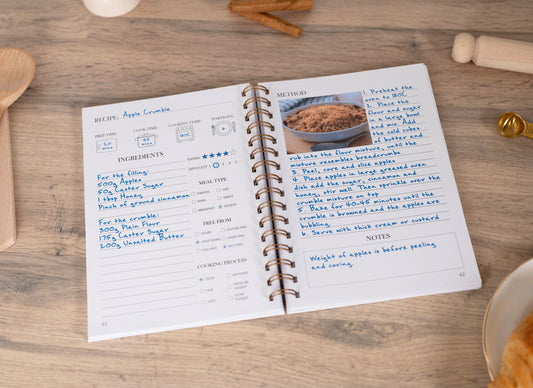 RECIPE: Apple Crumble
PREP TIME:
COOK TIME
COOKING TEMP:
PORTIONS
INGREDIENTS
For the filling:
500g Apples
50g Caster Sugar
1 tbsp Honey
Pinch of ground cinnamon
For the crumble:
300g Plain Flour
175g Caster Sugar
200g Unsalted Butter
RATING
DIFFICULTY
MEAL TYPE
DINNER
SIDE
MAIN
SNACK
BREAKFAST
DESSERT
FREE FROM
VEGAN
VEGETARIAN
NUT FREE
COOKING PROCESS
OVEN
AIR FRYER
HOB
PRESSURE COOKER
GRILL
SLOW COOKER
METHOD
1. Preheat the
oven to 180C
2. Place the
flour and sugar
in a large bowl
and mix. Add
the cold cubes
of butter and
rub into the flour mixture, until the
mixture resembles breadcrumbs
3. Peel, core and slice apples
4. Place apples in large greased oven
dish add the sugar, cinnamon and
honey, stir well. Then sprinkle over the
crumble mixture on top
5. Bake for 40-45 minutes until the
crumble is browned and the apples are
bubbling
. Serve with thick cream or custard
NOTES
Weight of apples is before peeling
and coring.
62